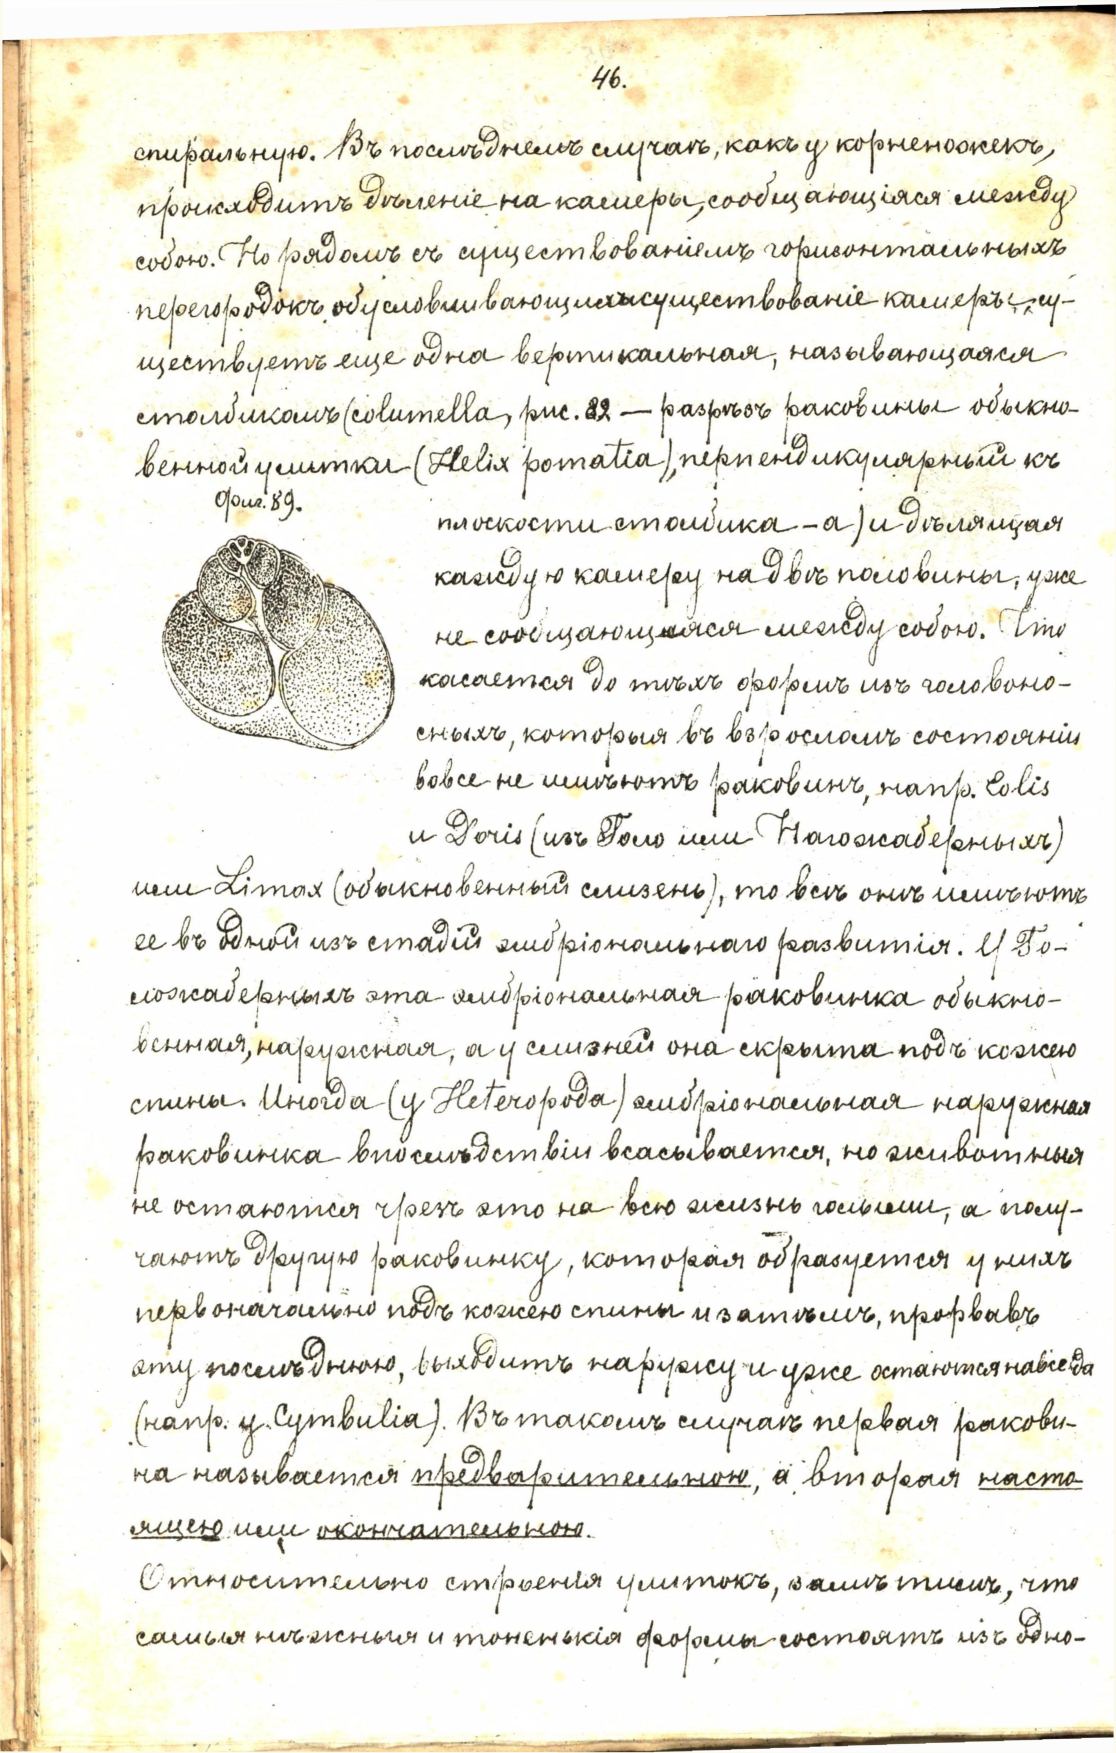 46.
спиральную. Въ послѣднемъ случаѣ, какъ у корненожекъ,
происходитъ дѣленіе на камеры, сообщающіяся между
собою. Но рядомъ съ существованіемъ горизонтальныхъ
перегородокъ, обусловливающихъ существованіе камеръ, су-
ществуетъ еще одна вертикальная, называющаяся
столбикомъ (columella, рис. 82 — разрѣзъ раковины обыкно-
венной улитки (Helix pomatia), перпендикулярный къ
Фиг. 89.
плоскости столбика – а) и дѣлящая
каждую камеру на двѣ половины, уже
не сообщающіяся между собою. Что
касается до тѣхъ формъ изъ головоно-
сныхъ, которыя въ взросломъ состояніи
вовсе не имѣютъ раковинъ, напр. Eolis
и Doris (изъ Голо или Нагожаберныхъ)
или Limax (обыкновенный слизень), то всѣ онѣ имѣютъ
ее въ одной изъ стадій эмбріональнаго развитія. У Го-
ложаберныхъ эта эмбріональная раковинка обыкно-
венная, наружная, а у слизней она скрыта подъ кожею
спины. Иногда (у Heteropoda) эмбріональная наружная
раковинка впослѣдствіи всасывается, но животныя
не остаются чрезъ это на всю жизнь голыми, а полу-
чаютъ другую раковинку, которая образуется у нихъ
первоначально подъ кожею спины и затѣмъ, прорвавъ
эту послѣднюю, выходитъ наружу и уже остаются навсегда
(напр. у Cymbulia). Въ такомъ случаѣ первая ракови-
на называется предварительною, а вторая насто-
ящею или окончательною.
Относительно строенія улитокъ, замѣтимъ, что
самыя нѣжныя и тоненькія формы состоятъ изъ одно-